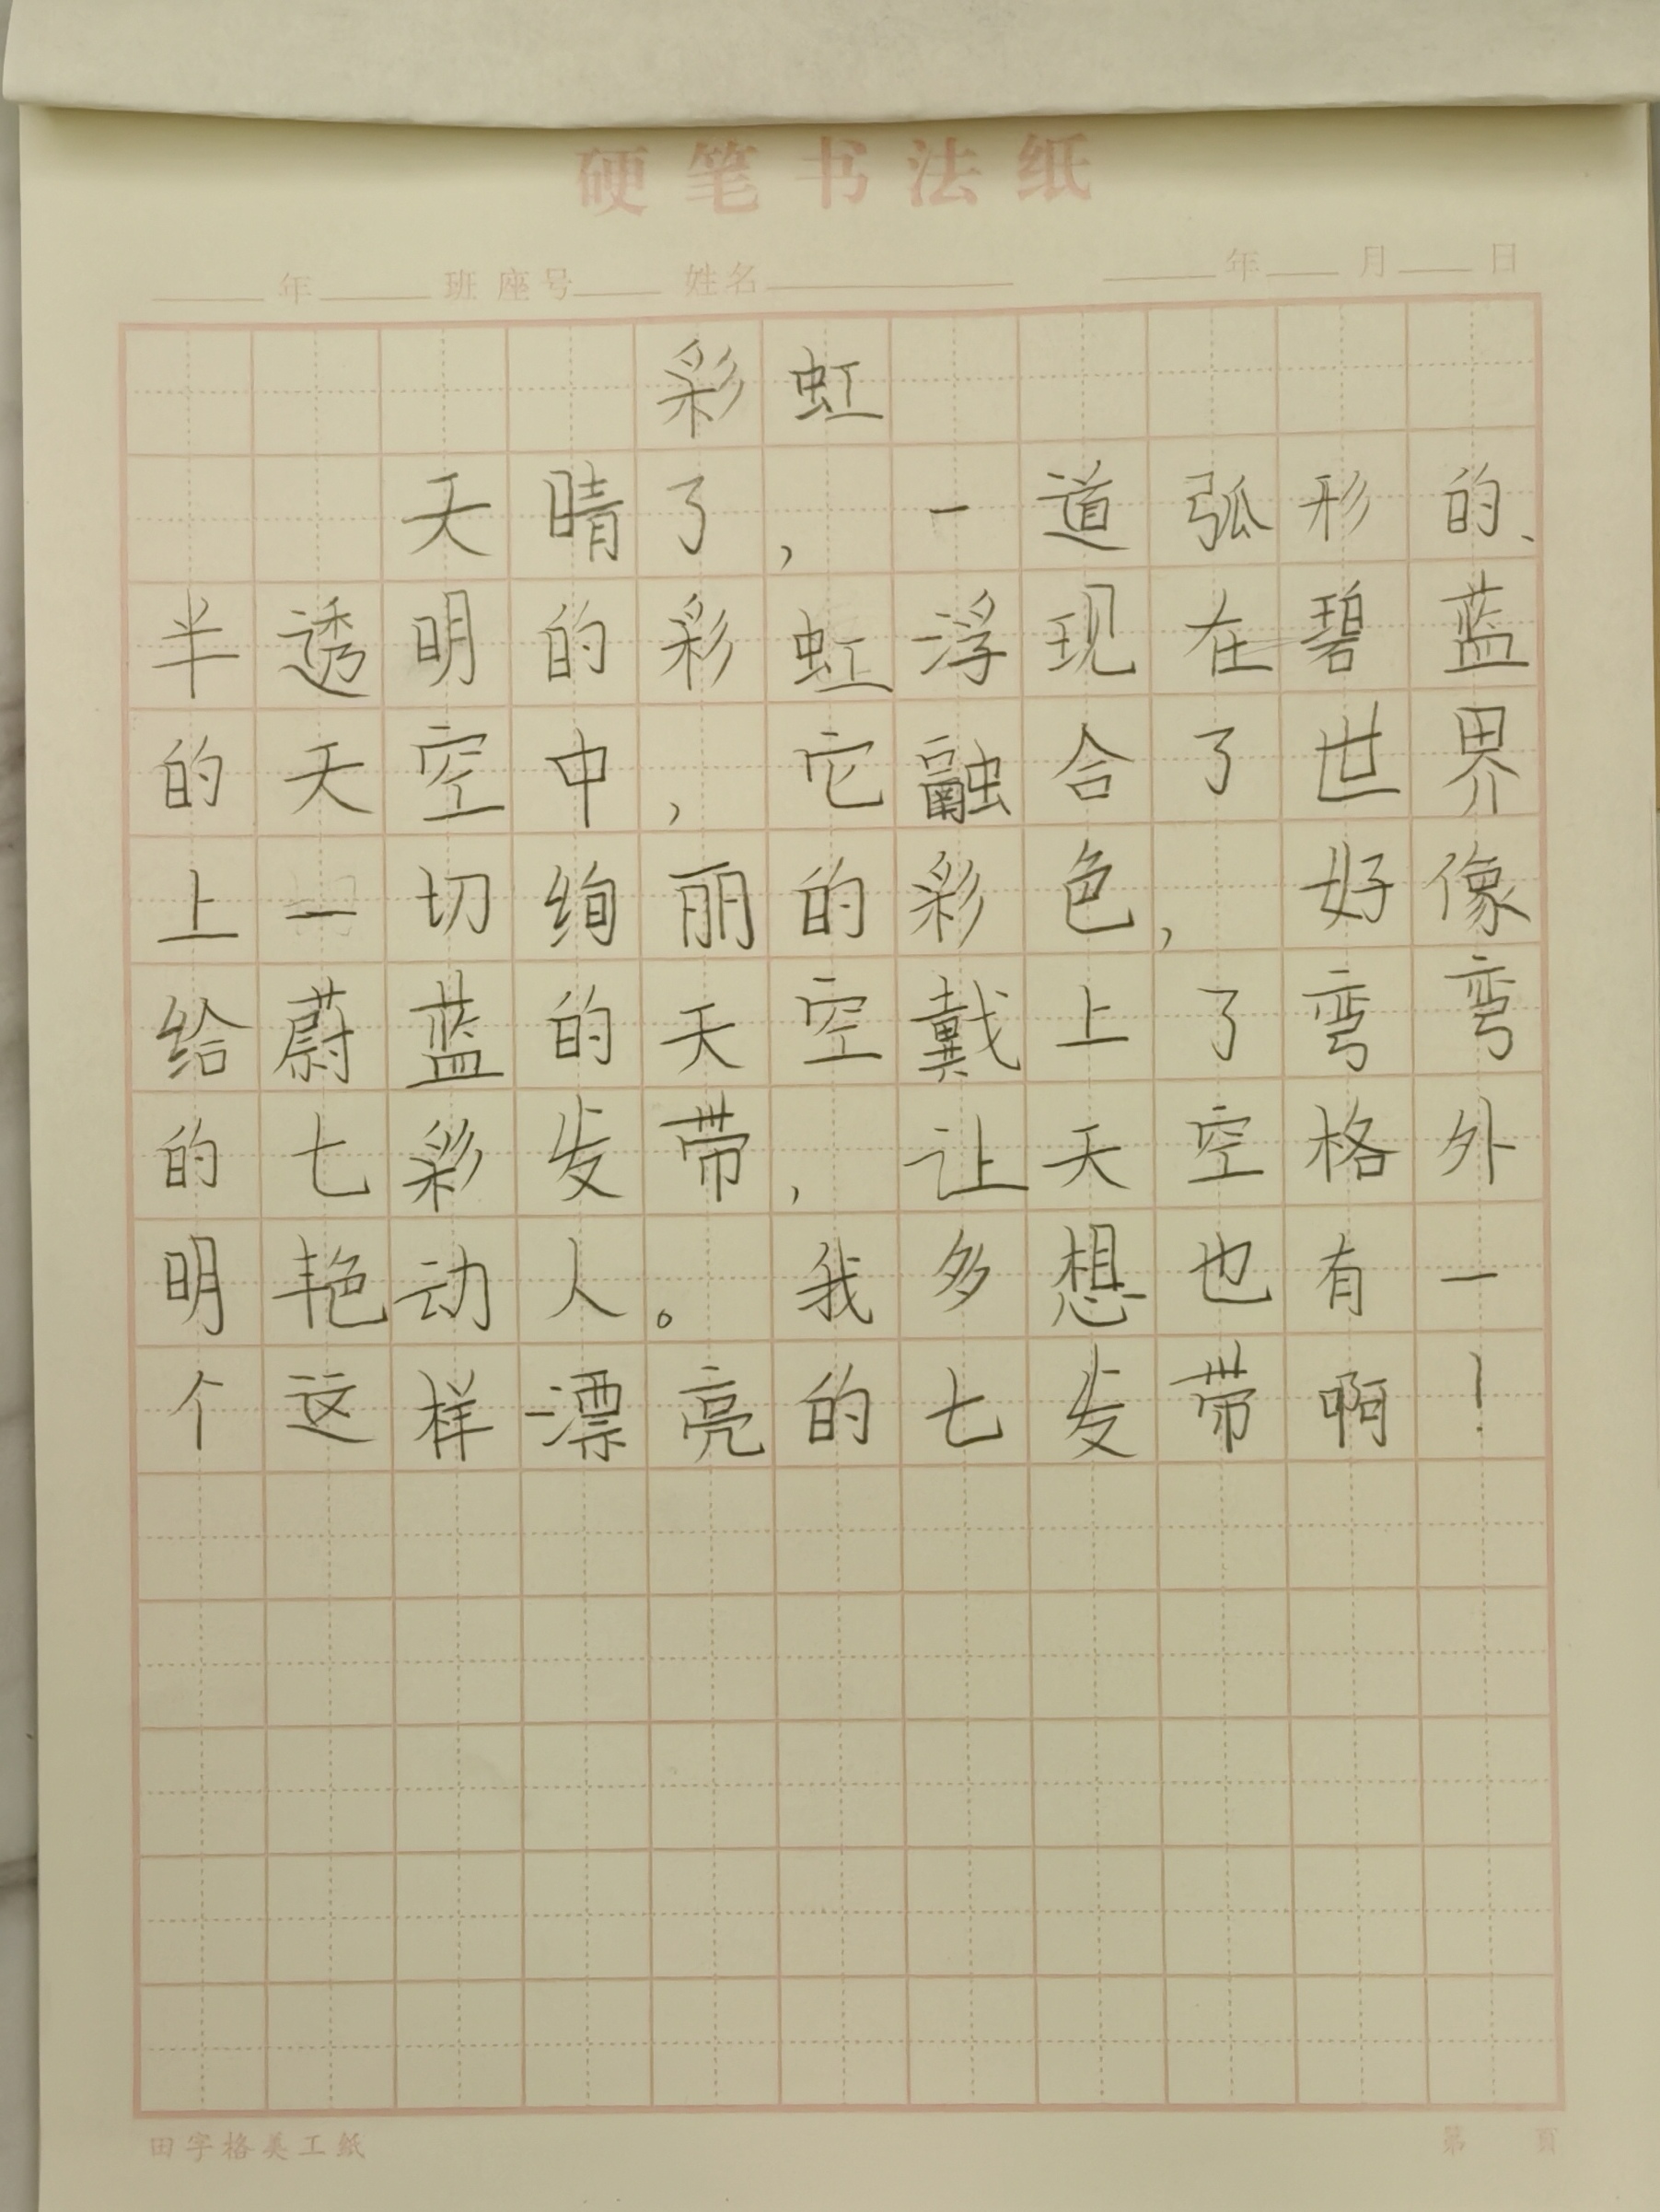 硬笔书法纸
年 班 座号 姓名 年 月 日
彩虹
天晴了，一道弧形的、
半透明的彩虹浮现在碧蓝
的天空中，它融合了世界
上一切绚丽的彩色，好像
给蔚蓝的天空戴上了弯弯
的七彩发带，让天空格外
明艳动人。我多想也有一
个这样漂亮的七发带啊！
田字格美工纸
第 頁